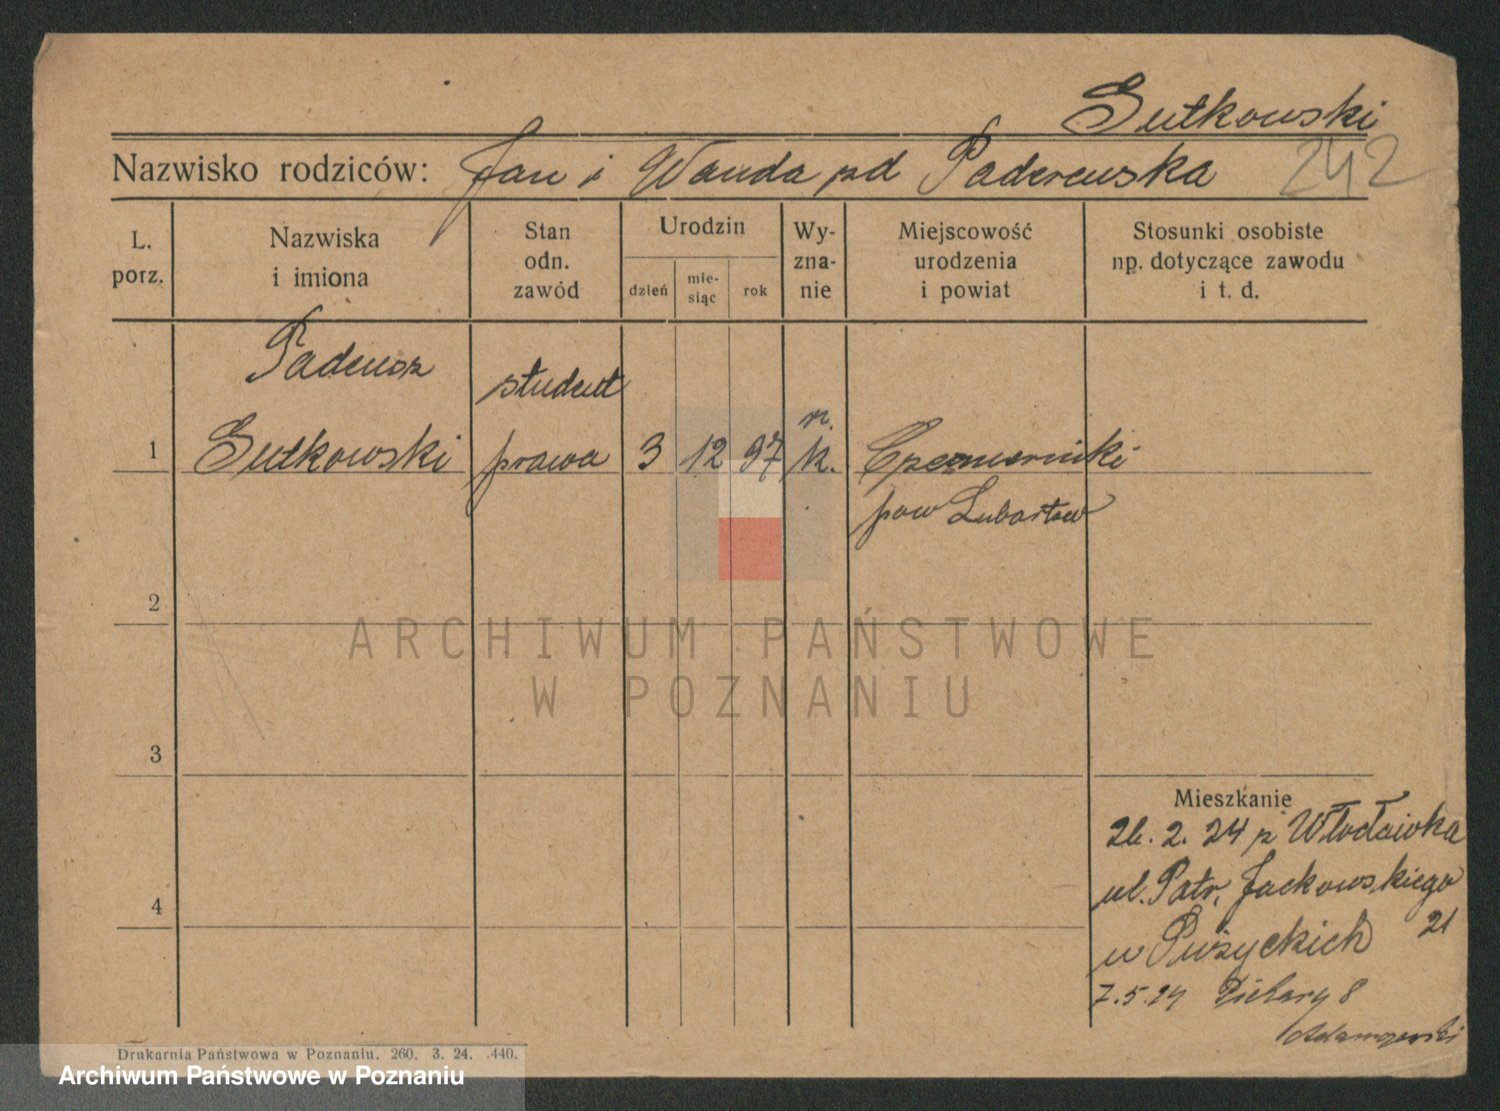 Sutkowski
Nazwisko rodziców: Jan i Wanda pd Paderewska 242
L. porz.
Nazwiska i imiona
Stan odn. zawód
Urodzin
dzień
mie-siąc
rok
Wy-zna-nie
Miejscowość urodzenia i powiat
Stosunki osobiste np. dotyczące zawodu i t. d.
Tadeusz
student
1 Sutkowski prawa 3 12 97 r. k. Czemierniki
pow Lubartów
2
3
4
ARCHIWUM PAŃSTWOWE
W POZNANIU
Mieszkanie
26. 2. 24 z Włocławka
ul. Patr. Jackowskiego
21
u
7.5.24 Piekary 8
Drukarnia Państwowa w Poznaniu. 260. 3. 24. 440.
Archiwum Państwowe w Poznaniu